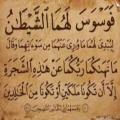 فَوَسْوَسَ لَهُمَا الشَّيْطَٰنُ
لِيُبْدِيَ لَهُمَا مَا وُورِيَ عَنْهُمَا مِن سَوْءَٰتِهِمَا وَقَالَ
مَا نَهَىٰكُمَا رَبُّكُمَا عَنْ هَٰذِهِ الشَّجَرَةِ
إِلَّا أَن تَكُونَا مَلَكَيْنِ أَوْ تَكُونَا مِنَ الْخَٰلِدِينَ